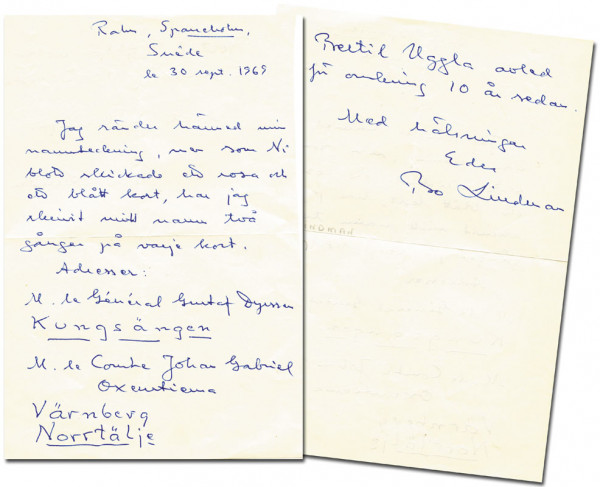 Rahm, Spaneholm,
Suède
le 30 sept. 1969
Jag sänder härmed min
namnteckning, men som Ni
blott skickade ett rosa och
ett blått kort, har jag
skrivit mitt namn två
gånger på varje kort.
Adresser:
M. le Général Gustaf Dyrssen
Kungsängen
M. le Comte Johan Gabriel
Oxenstierna
Värnberg
Norrtälje
Bertil Uggla avled
för omkring 10 år sedan.
Med hälsningar
Eder
Bo Lindman